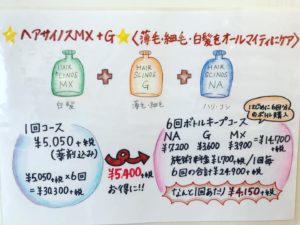 ヘアサイノスMX+G〈薄毛・細毛・白髪をオールマイティにケア〉
HAIR SLINGS MX
HAIR SLINGS G
HAIR SLINGS NA
白髪
薄毛・細毛
ハリ・コシ
はじめに6回分のボトル購入
1回コース
¥5,050+税
(薬剤込み)
¥5,050+税×6回
=¥30,300+税
¥5,400+税
お得に!!
6回ボトルキープコース
NA G MX
¥7,200 ¥3,600 ¥3,900
=¥14,700+税
施術料金¥1,700+税/1回毎
6回の合計¥24,900+税
なんと1回あたり¥4,150+税